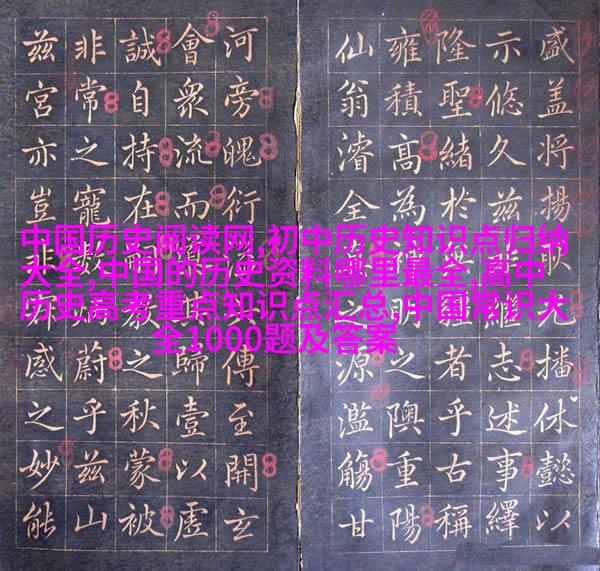 盛盖将揚耿光播休懿以
示悠久兹雖志述事繹
隆聖緒於無疆者乎古稱
雍積高為明之隩重陽
仙翁濬全源濫觴甘
河旁魄衍傳至開玄
會衆流而其歸壹以虛
誠自持在嗣教之秋蒙被
非常之寵数蔚乎兹山
兹宮亦豈非有感之妙能
中国历史阅读网,初中历史知识点归纳
大全,中国的历史资料哪里最全,高中
历史高考重点知识点汇总,中国常识大
全1000题及答案